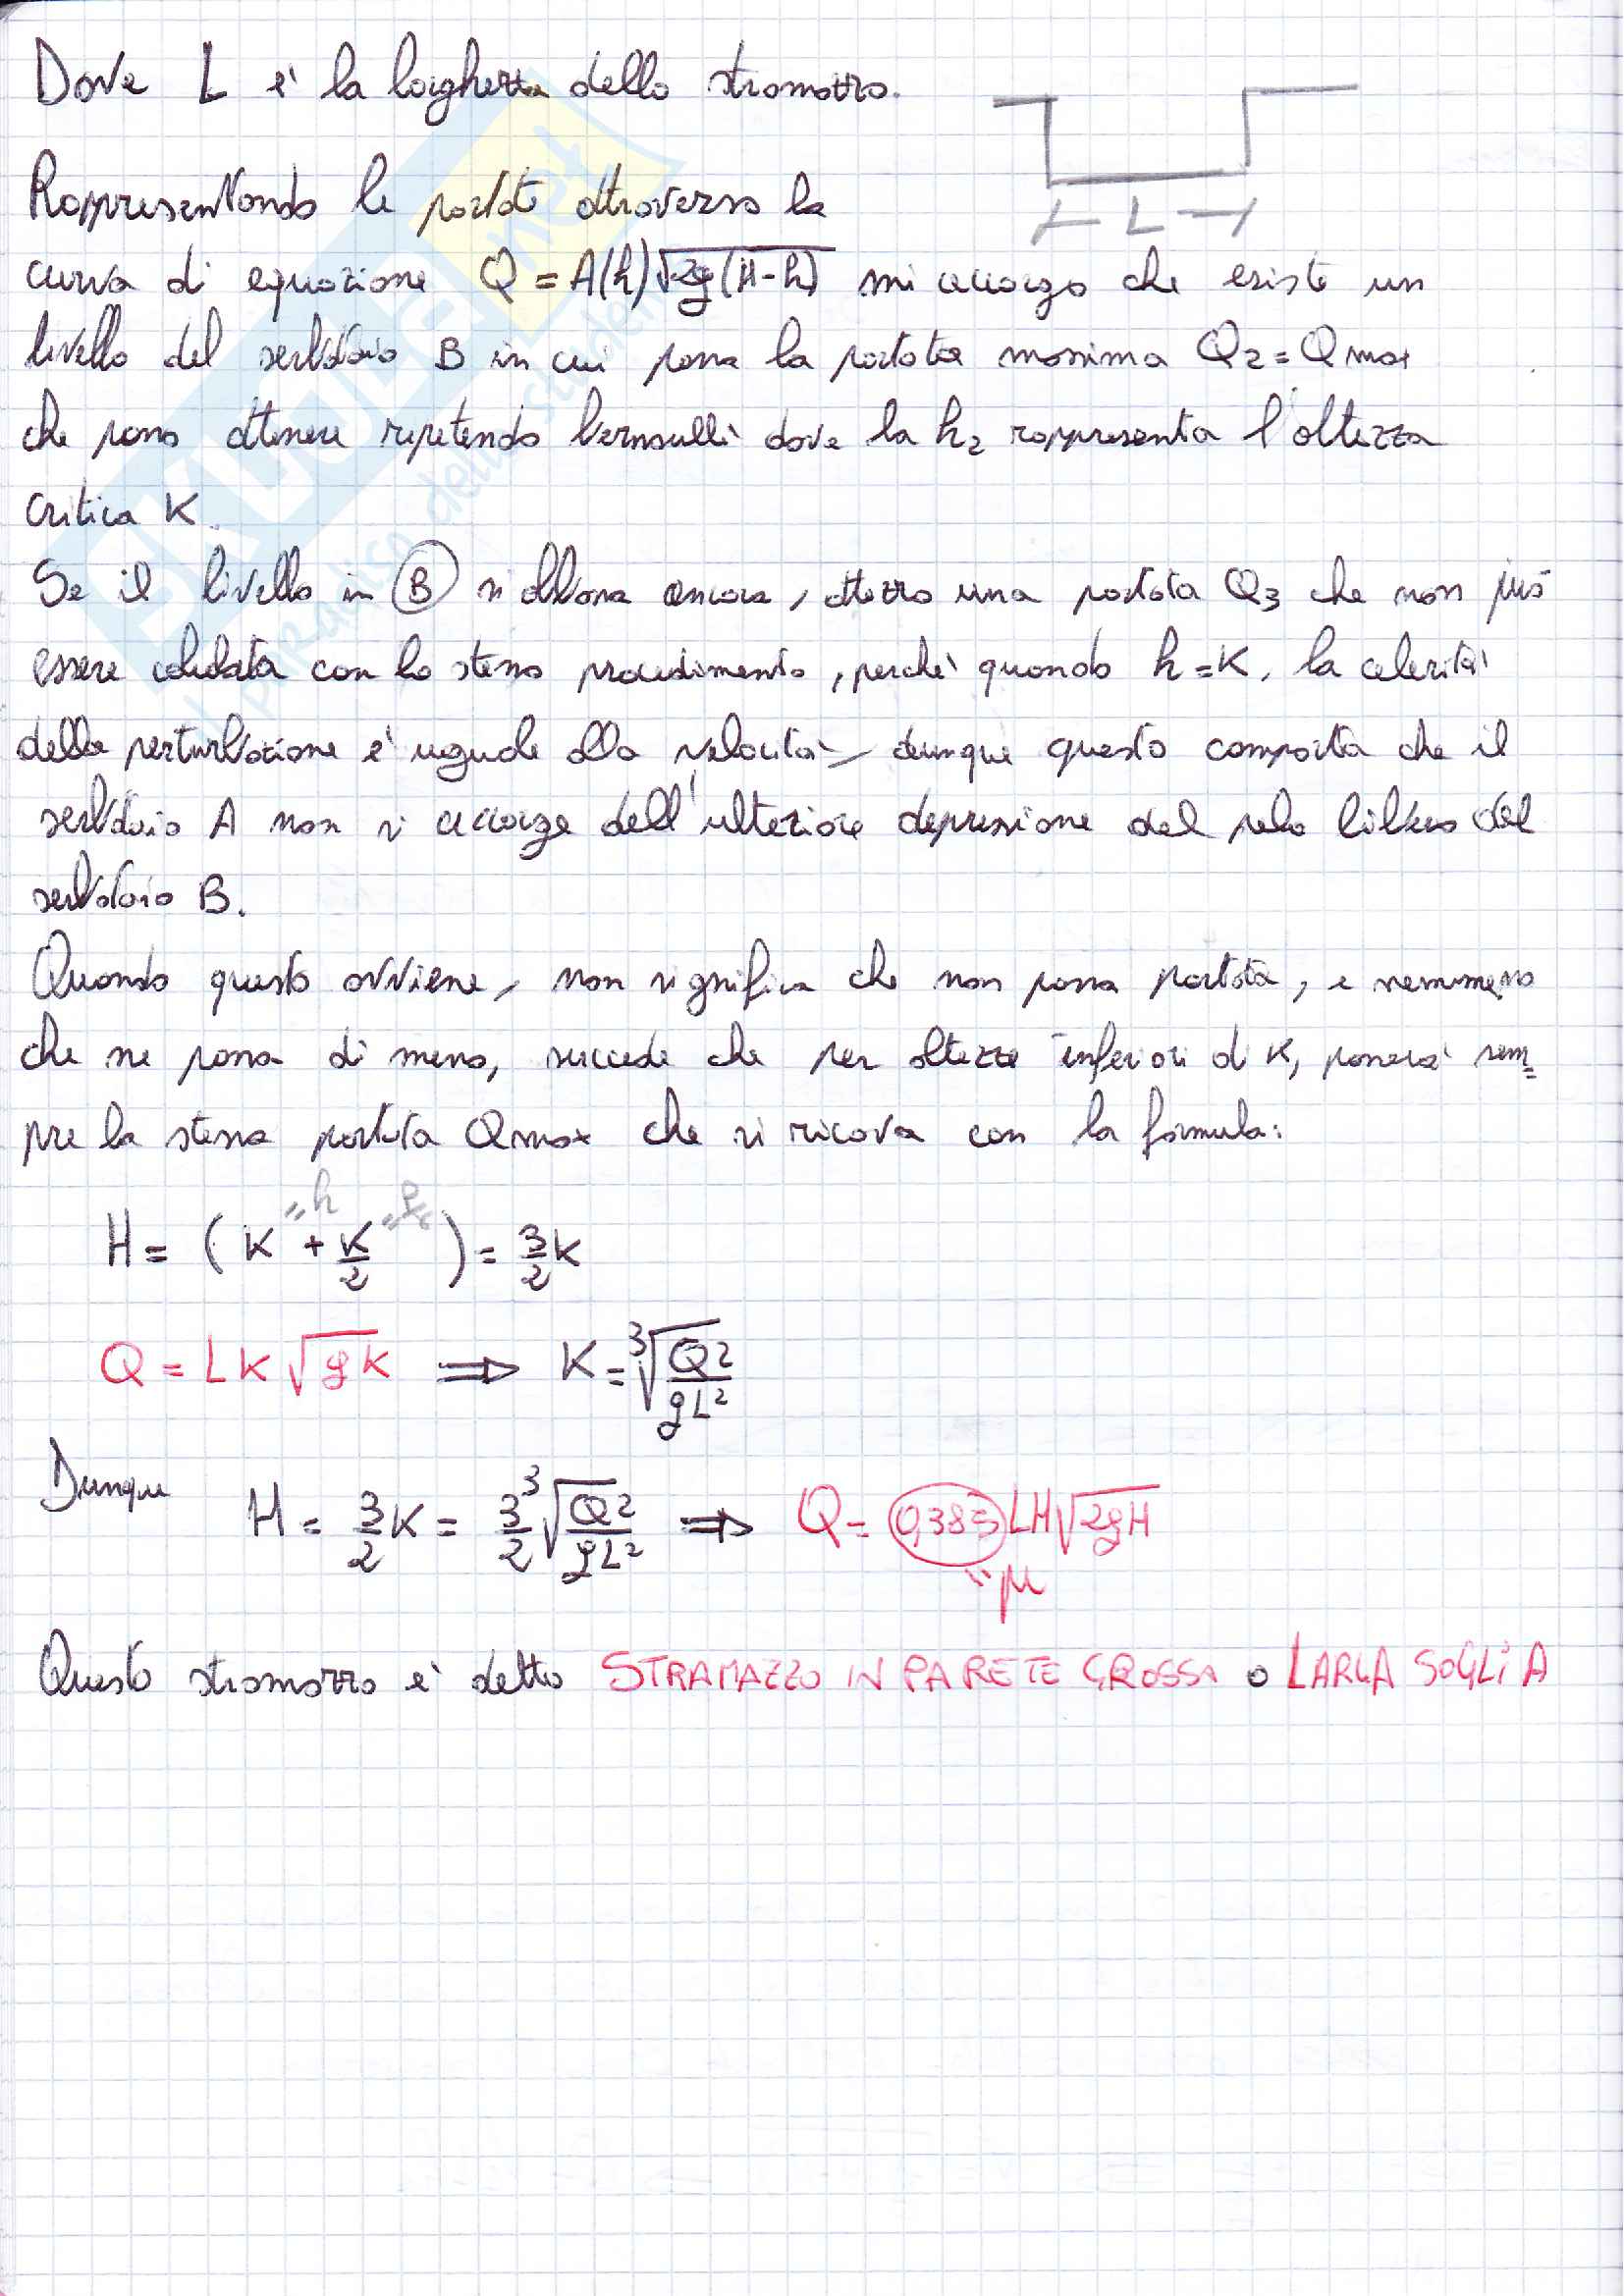 Dove L è la larghezza dello stramazzo.
L
Rappresentando le portate attraverso la
curva di equazione Q = A(h)√2g(H-h) mi accorgo che esiste un
livello del serbatoio B in cui passa la portata massima Q2 = Qmax
che posso ottenere ripetendo bernoulli dove la h2 rappresenta l'altezza
critica K.
Se il livello in B si abbassa ancora, otterrò una portata Q3 che non può
essere calcolata con lo stesso procedimento, perché quando h=K, la celerità
della perturbazione è uguale alla velocità, dunque questo comporta che il
serbatoio A non si accorge dell'ulteriore depressione del pelo libero del
serbatoio B.
Quando questo avviene, non significa che non passa portata, e nemmeno
che ne passa di meno, succede che per altezze inferiori di K, passerà sem=
pre la stessa portata Qmax che si ricava con la formula:
H = (K =h + K/2) = 3/2 K
Q = LK√gK ⇒ K = ³√Q²/gL²
Dunque H = 3/2 K = 3/2 ³√Q²/gL² ⇒ Q = 0,385 LH√2gH
"μ
Questo stramazzo è detto STRAMAZZO IN PARETE GROSSA o LARGA SOGLIA